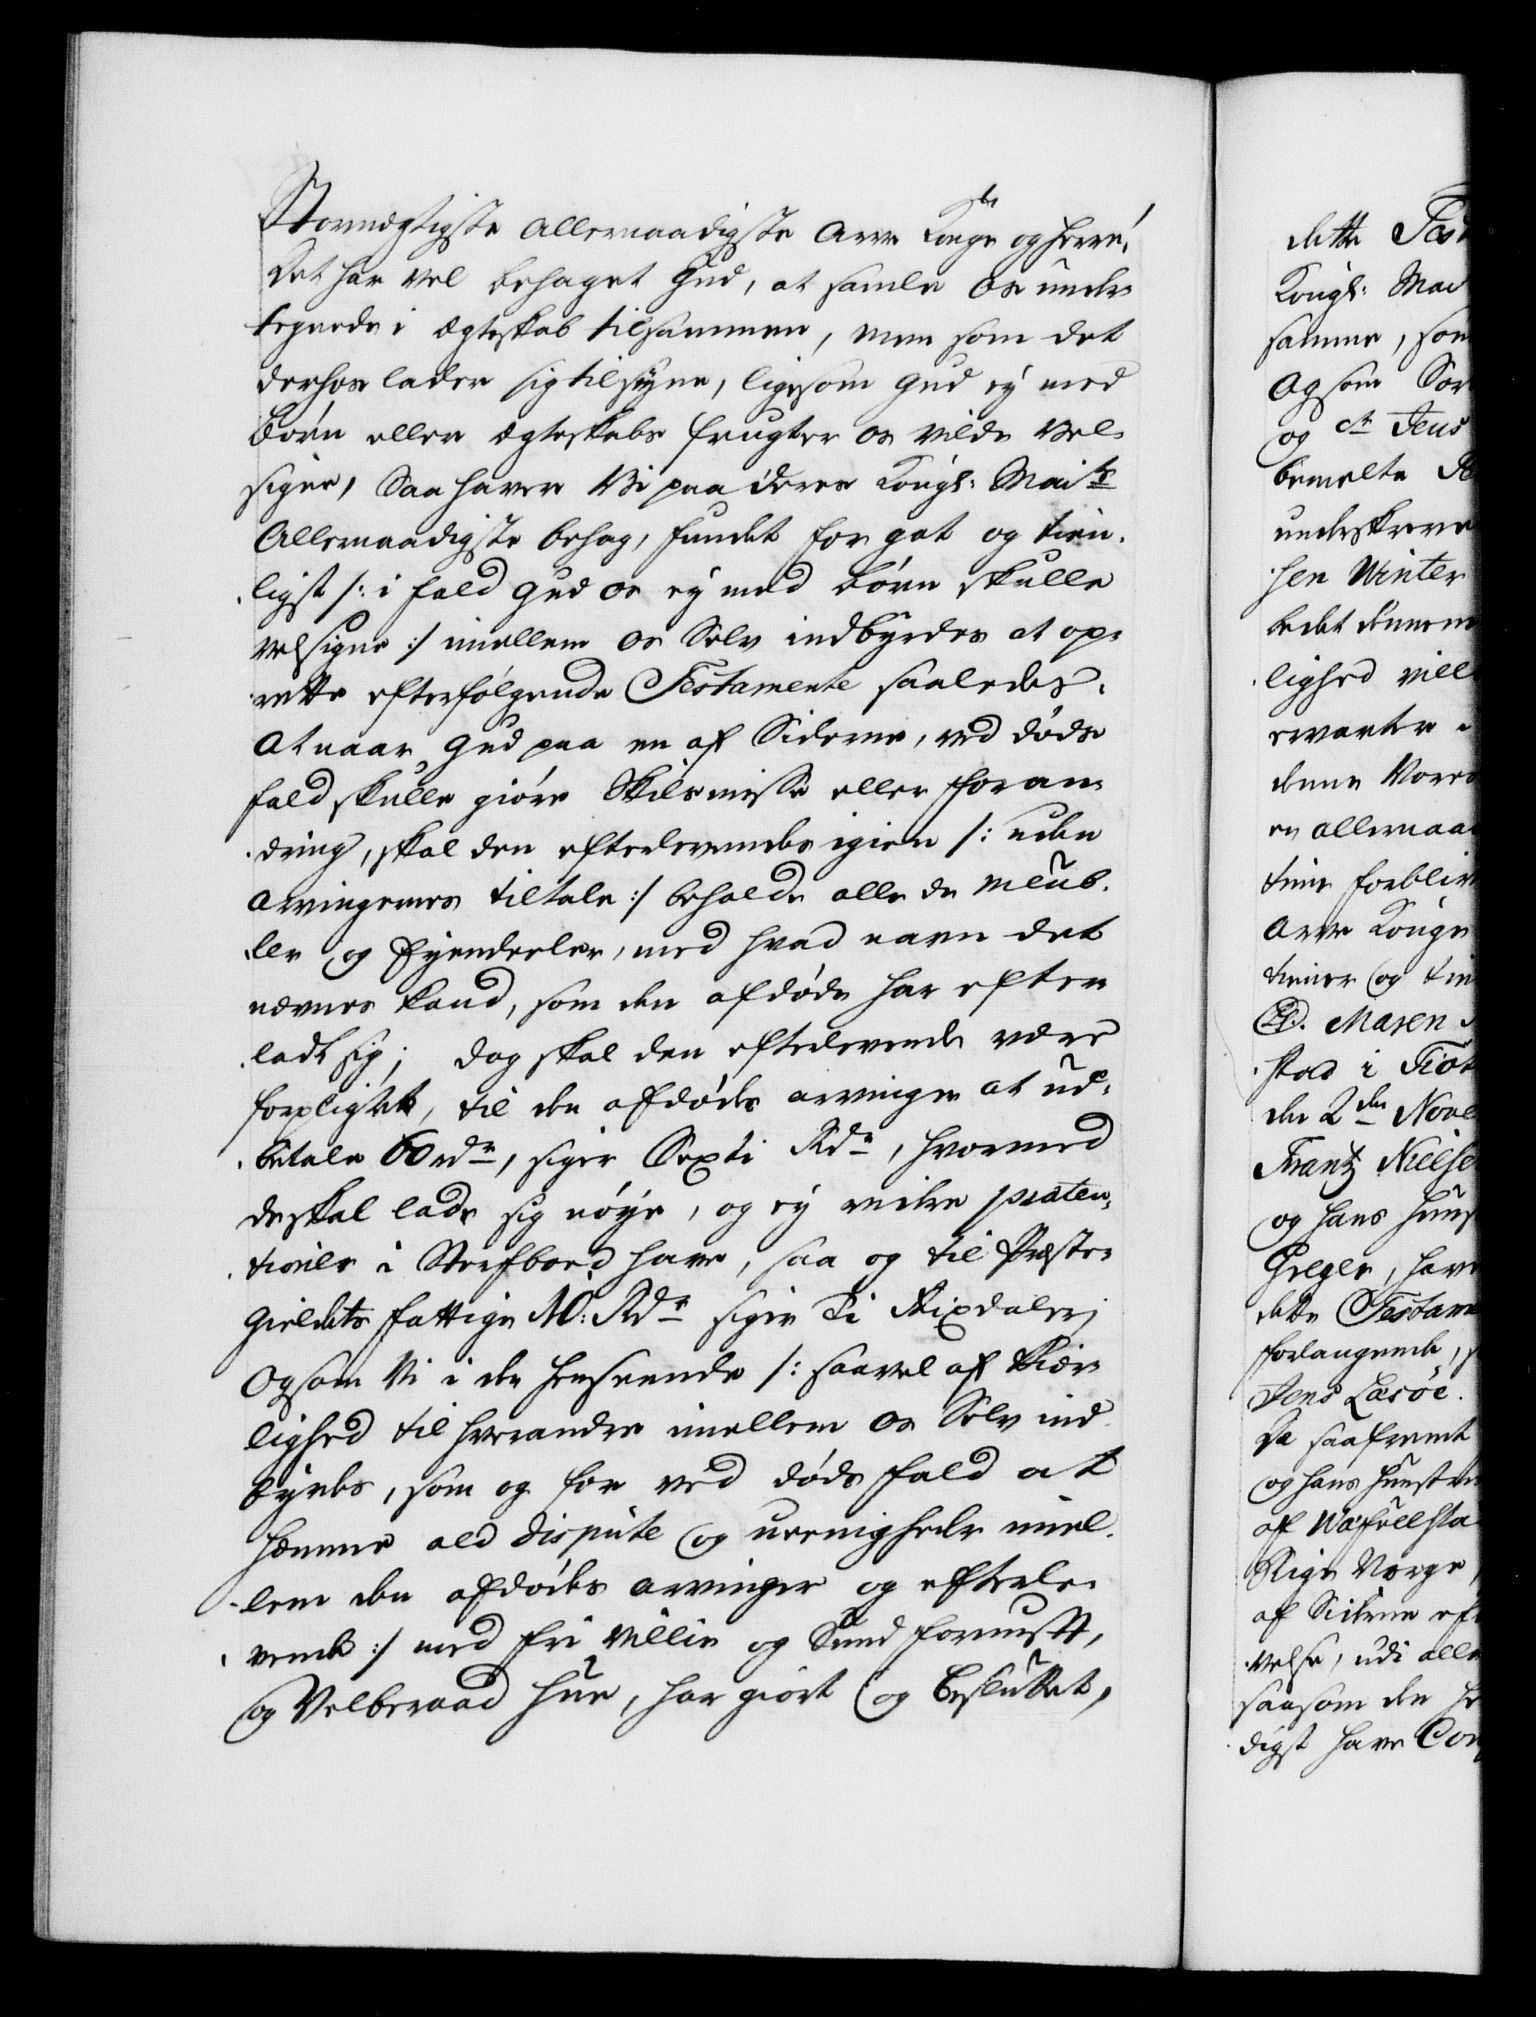 Stormægtigste Allernaadigste Arve Konge og Herre,
Det har vel behaget Gud, at samle os under
tegnede i ægteskab tilsammen, men som det
derhos lader sig tilsyne, ligesom Gud ey med
Børn eller ægteskabs frugter os vilde Vel-
signe, Saa haver Vi paa deres Kongl: Maits
Allernaadigste behag, fundet for got og tien-
ligst /: i fald Gud os ey med Børn skulle
velsigne :/ imellem os Selv indbyrdes at op-
rette efterfølgende Testamente saaledes,
At naar Gud paa en af Siderne, ved døds
fald skulle giøre Skilsmisse eller foran-
dring, skal den efterlevende igien /: uden
Arvingernes tiltale :/ beholde alle de Meub-
ler og Eyendeeler, med hvad navn det
nævnes kand, som den afdøde har efter
ladt sig; dog skal den efterlevende være
forpligtet, til den afdødes arvinger at ud-
betale 60 rdr, siger Sexti Rdr, hvormed
de skal lade sig nøye, og ey videre præten-
tioner i Sterfboed have, saa og til Præste-
Gieldets fattige 10: Rdr siger Ti Rixdaler;
Og som Vi i den henseende /: saavel af Kier-
lighed til hverandre imellem os Selv ind-
byrdes, som og for ved døds fald at
hemme ald dispute og ueenigheder imel-
lem den afdødes arvinger og efterle-
vende :/ med fri Villie og Sund fornufft,
og Velberaad Hue, har giort og besluttet,
dette Test
Kongl: Mai
samme, som
Og som Sor
og Sr Jens
bemelte
underskreve
sen Winter
bedet denne
lighed ville
erwarter
denne Vores
en allernaa
tinir forbliv
Arve Konge
tiener og tie
Ed. Maren
stad i Tiøt
den 2den Nove
Frantz Nielse
og hans Huus
Greger, have
dette Testam
forlangende,
Jens Læsøe.
Da saafremt
og hans Hustru
af
Rige Norge
af Siderne eft
velse, udi alle
saasom den
digst have Con